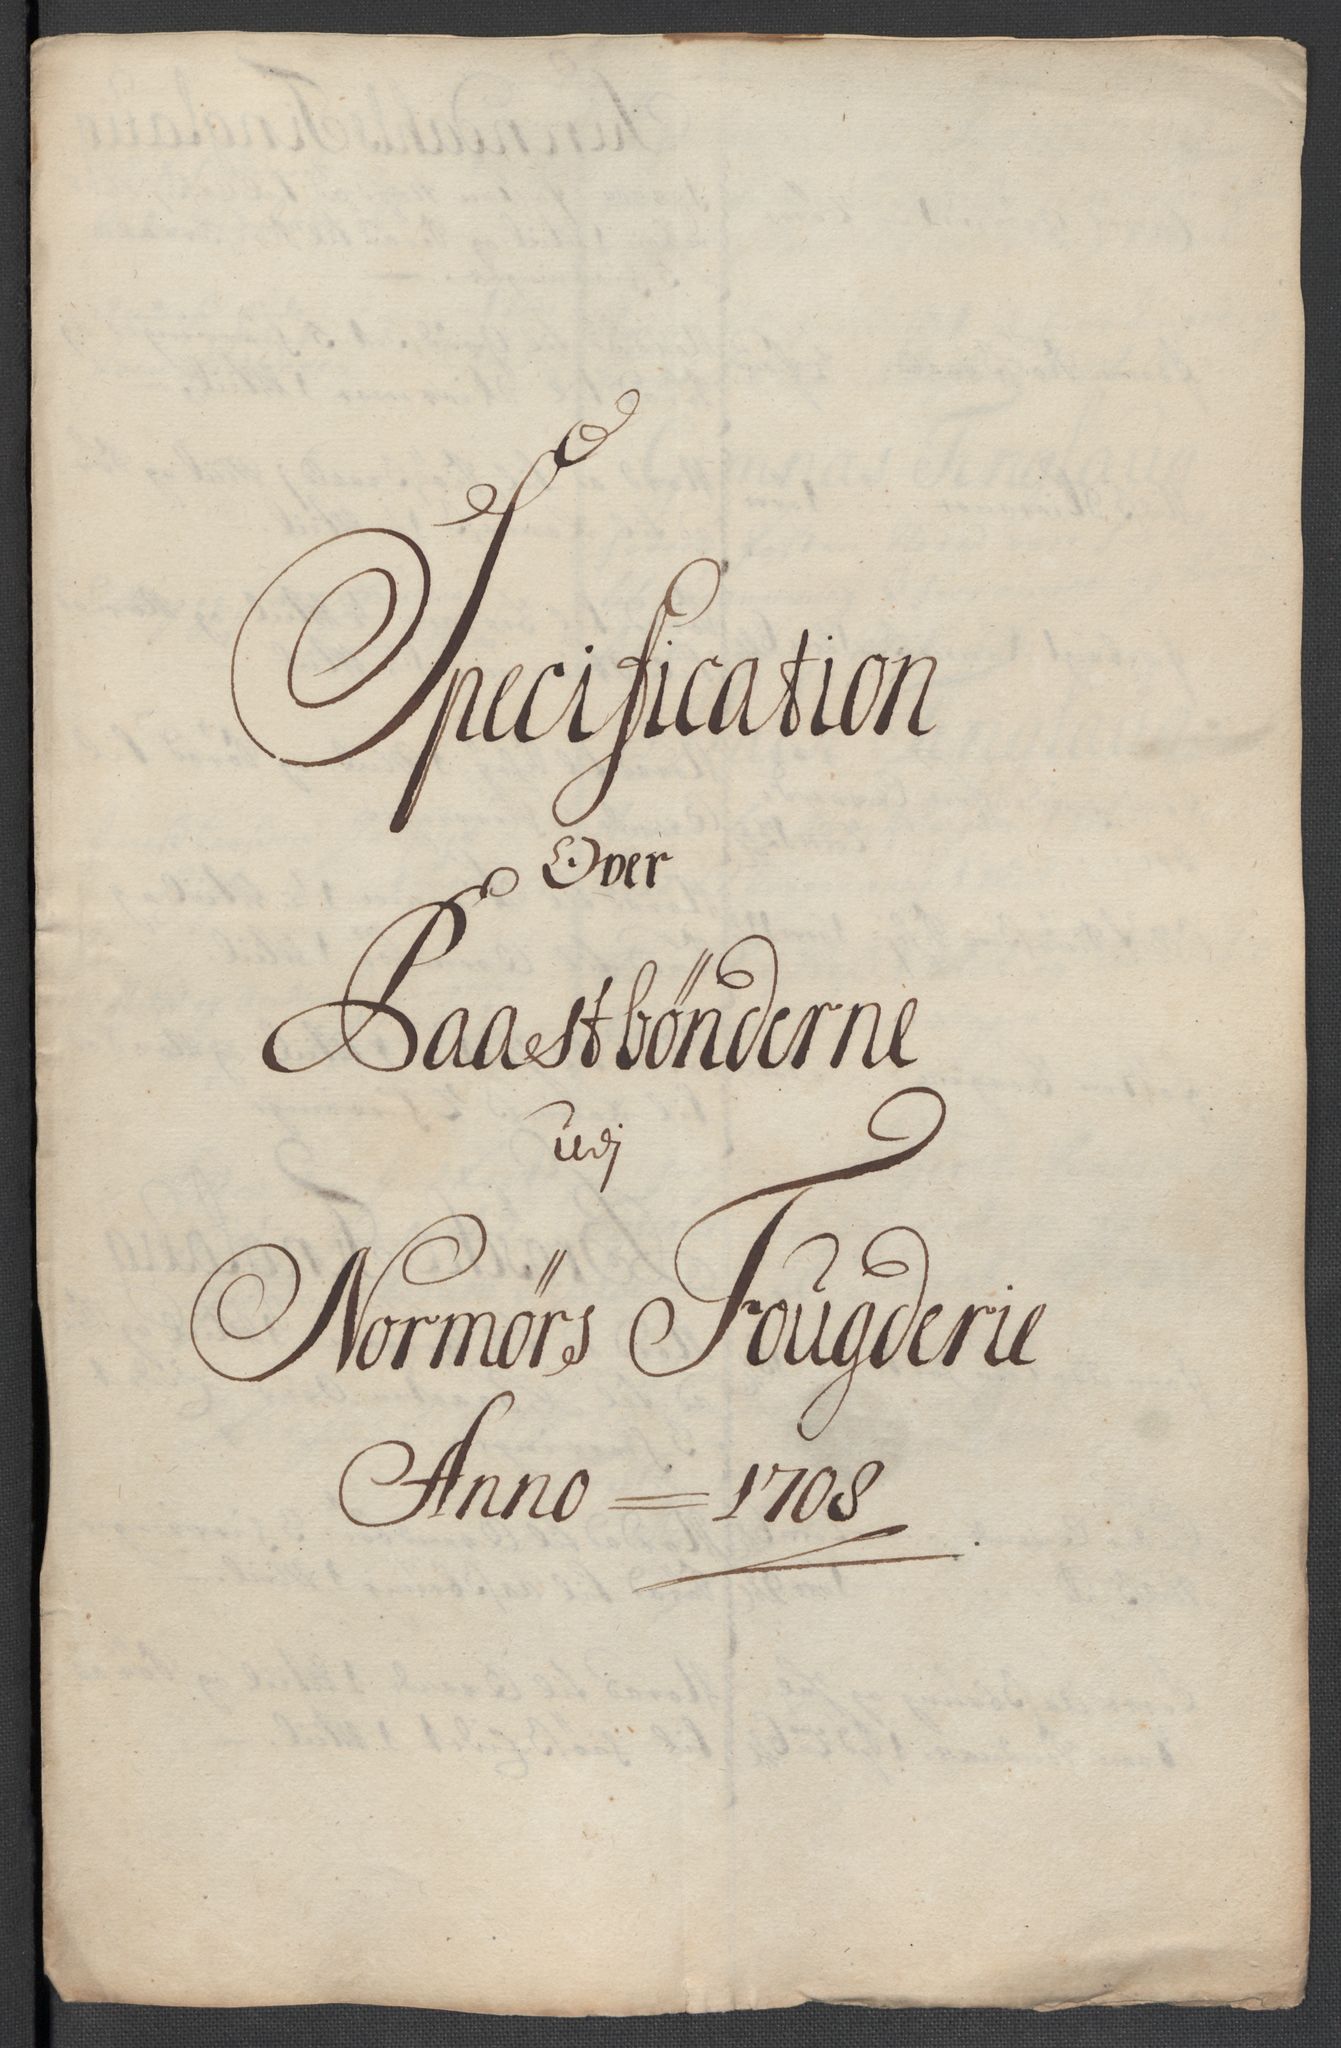 Specification
Over
Paastbønderne
udj
Normørs Fougderie
Anno = 1708